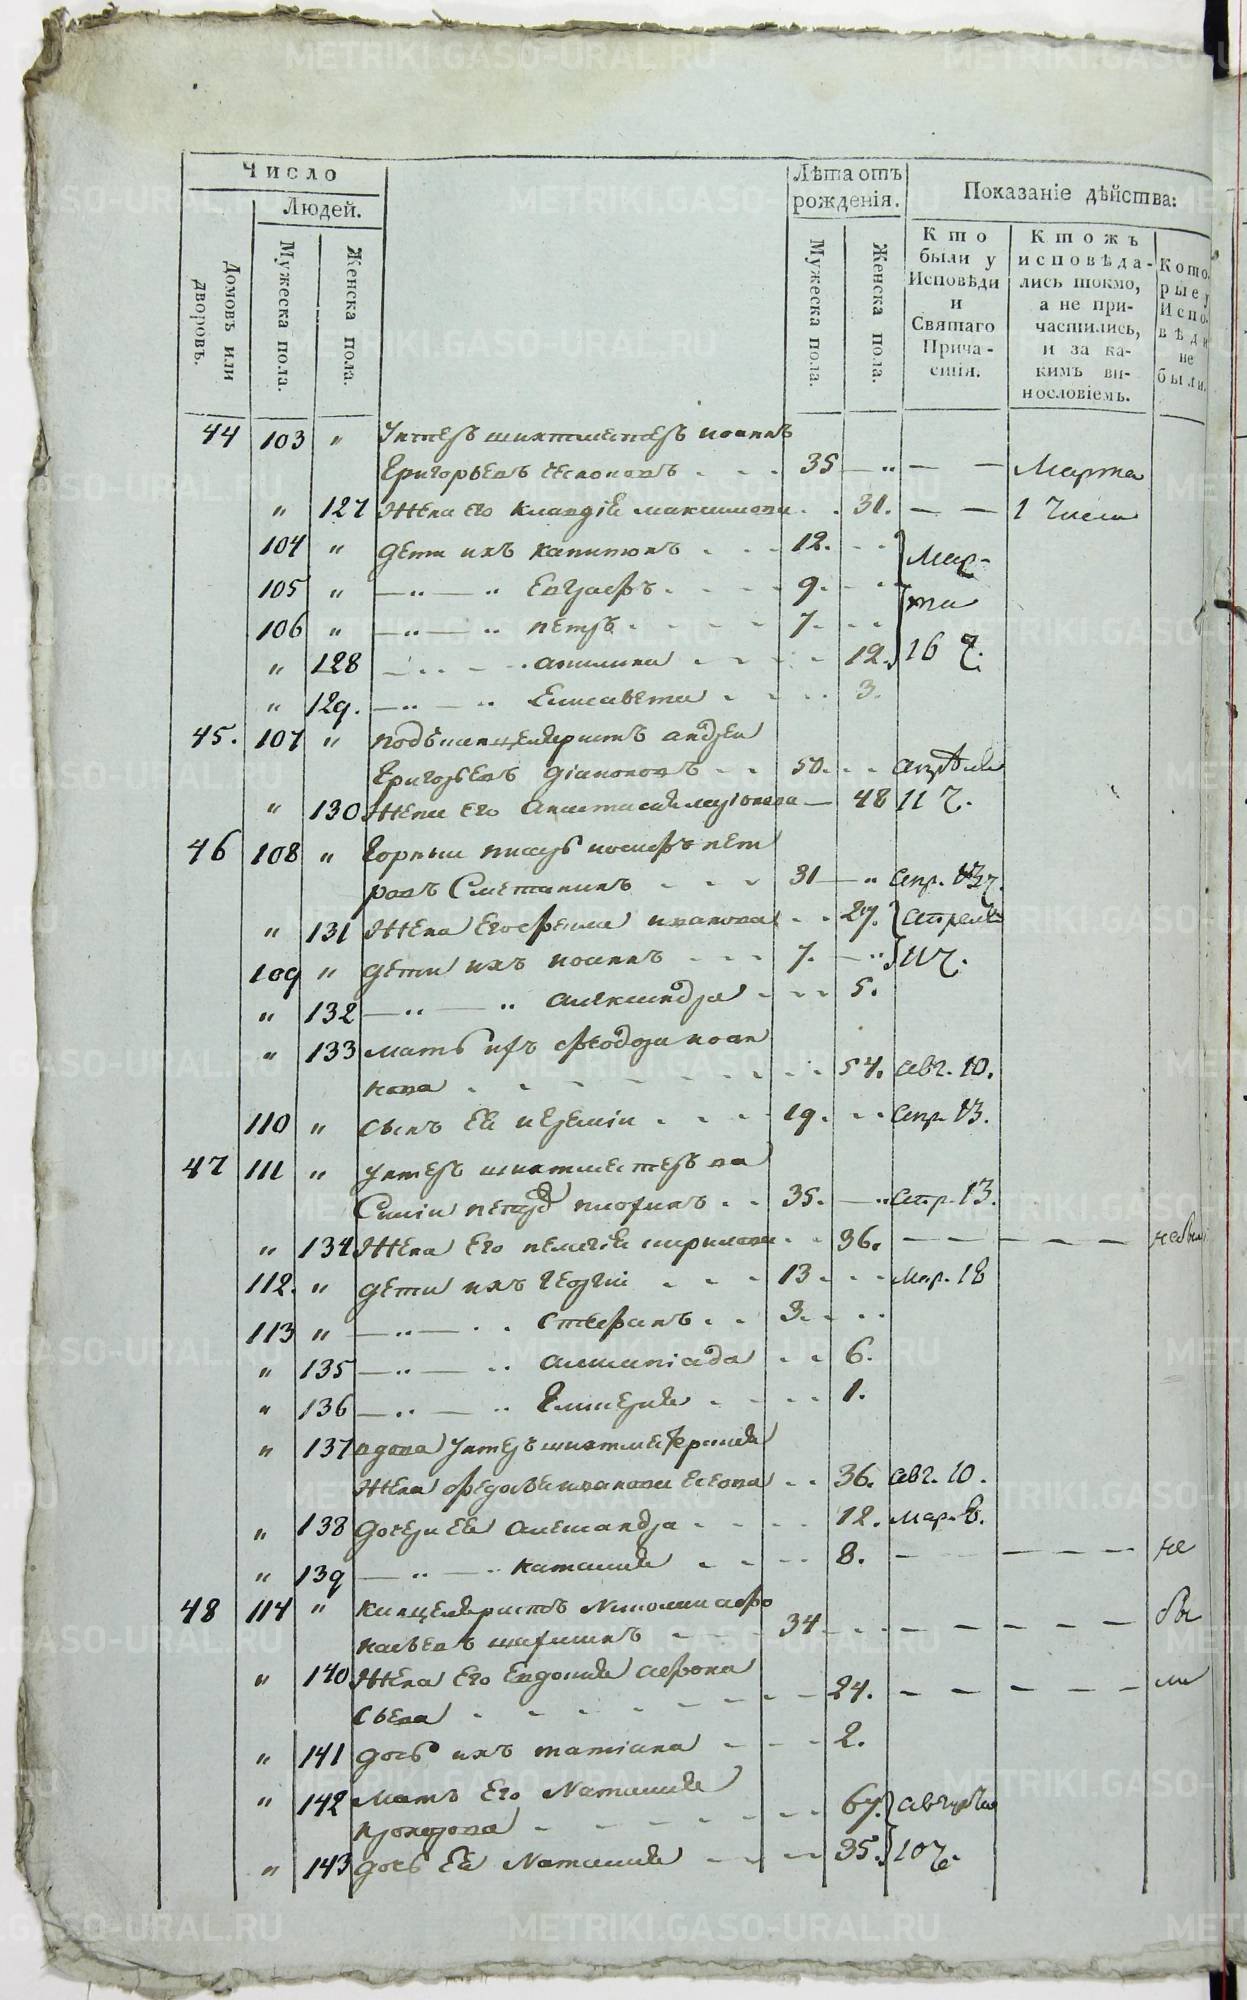 Число
Людей.
Домовъ или дворовъ.
Мужеска пола.
Женска пола.
Лѣта отъ рожденія.
Мужеска пола.
Женска пола.
Показаніе дѣйства:
Кто были у Исповѣди и Святаго Причастія.
Ктожъ исповѣдались токмо, а не причастились, и за какимъ винословіемъ.
Которые у Исповѣди не были.
44 103 " Унтеръ шихтмейстеръ иоаннъ
Григорьевъ 35 — " — — Марта
" 127 Жена его клавдіа максимова 31. — — 1 числа
104 " дети ихъ капитонъ 12. Мар-
105 " — " — " 9. та
106 " — " — " петръ 7.
" 128 12. 16 ч.
" 129. — " — " Елисавета 3.
45. 107 " подъканцеляристъ андреи
Григорьевъ 50. апреля
" 130 Жена его Анастасия — 48 11 ч.
46 108 " Горныи писарь иосифъ пет
ровъ Сметанинъ 31 — " Апр. 13 ч.
" 131 Жена его иванова 27. апреля
109 " дети ихъ иоаннъ 7. — " 11 ч.
" 132 — " — " александра 5.
" 133 мать ихъ феодора иоан
нова 54. авг. 10.
110 " сынъ Ея иеремiи 19. Апр. 13.
47 111 " унтеръ шихтмеистеръ ва
Силiи петровъ 35. — " апр. 13.
" 134 Жена Его пелагiя 36. — — — — не были
112. " дети ихъ георгiи 13 мар. 18
113 " — " — стефанъ 3.
" 135 — " — " 6.
" 136 — " — " 1.
" 137 вдова унтеръ шихтмеистерская
Жена иванова 36. авг. 10.
" 138 дочери Ея Александра 12. мар. 8.
" 139 — " — наталия 8. — — — — не
48 114 " канцеляристъ Николаи афо
насьевъ 34 — — — — бы
" 140 Жена Его Евдокия афона
Сьева 24. — — — — ли
" 141 дочь ихъ татiана 2.
" 142 мать Его Наталия 67. августа
" 143 дочь Ея Наталия 35. 10 ч.
METRIKI.GASO-URAL.RU